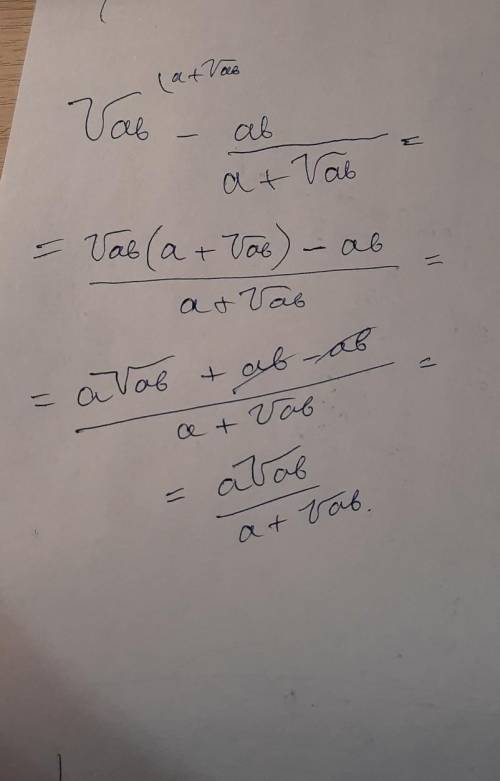 √ab ^(a+√ab - ab/(a+√ab) =
= (√ab(a+√ab) - ab)/(a+√ab) =
= (a√ab + ab - ab)/(a+√ab) =
= a√ab/(a+√ab.